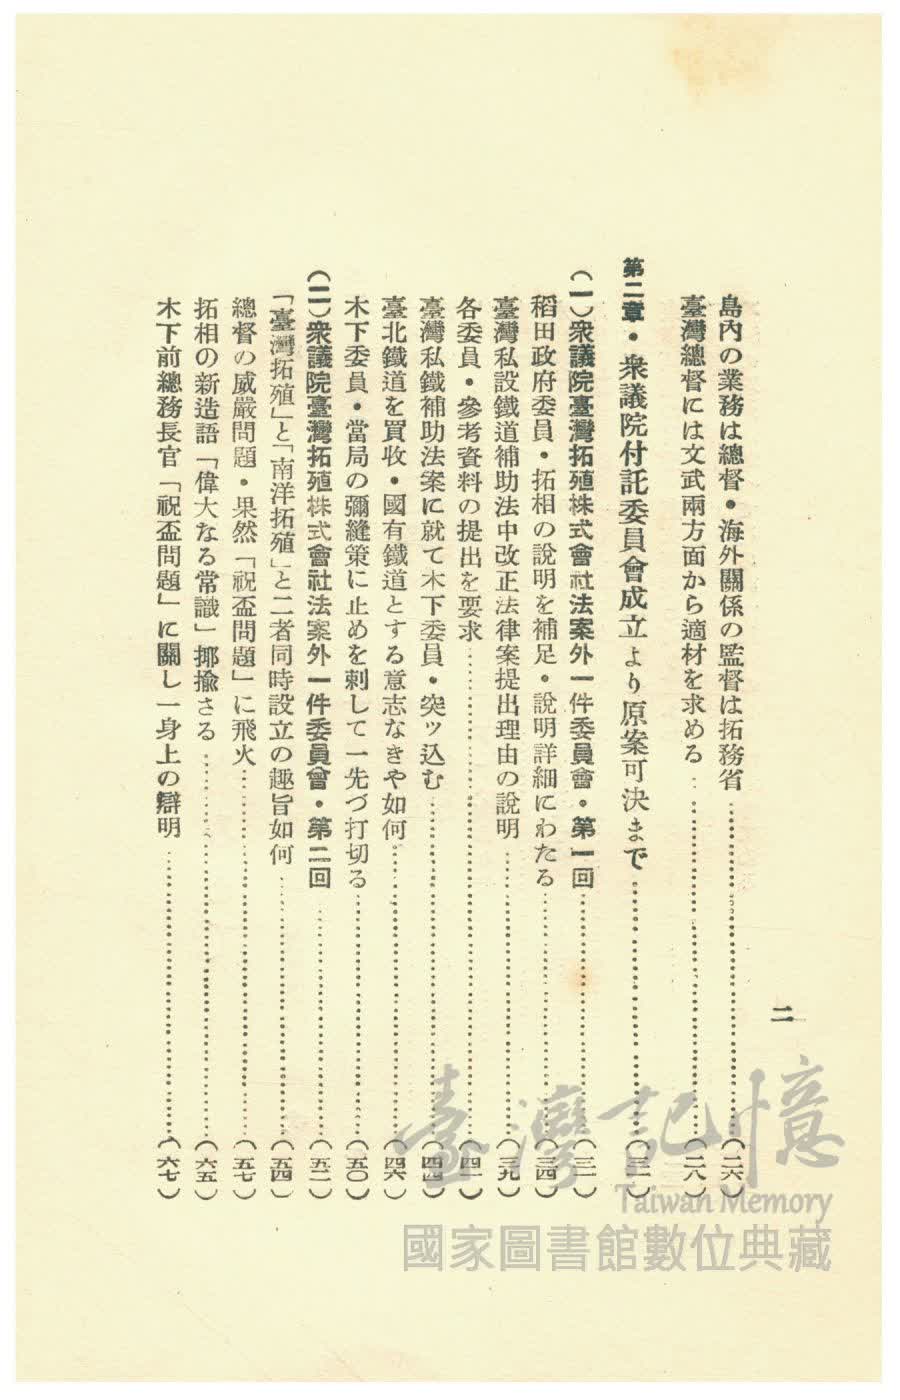 二
島內の業務は總督・海外關係の監督は拓務省…………(二六)
臺灣總督には文武兩方面から適材を求める…………(二八)
第二章・衆議院付託委員會成立より原案可決まで…………(三一)
(一)衆議院臺灣拓殖株式會社法案外一件委員會・第一回…………(三一)
稻田政府委員・拓相の說明を補足・說明詳細にわたる…………(三四)
臺灣私設鐵道補助法中改正法律案提出理由の說明…………(三九)
各委員・參考資料の提出を要求…………(四一)
臺灣私鐵補助法案に就て木下委員・突ッ込む…………(四四)
臺北鐵道を買收・國有鐵道とする意志なきや如何…………(四六)
木下委員・當局の彌縫策に止めを刺して一先づ打切る…………(五〇)
(二)衆議院臺灣拓殖株式會社法案外一件委員會・第二回…………(五二)
「臺灣拓殖」と「南洋拓殖」と二者同時設立の趣旨如何…………(五四)
總督の威嚴問題・果然「祝盃問題」に飛火…………(五七)
拓相の新造語「偉大なる常識」揶揄さる…………(六五)
木下前總務長官「祝盃問題」に關し一身上の辯明…………(六七)
臺灣記憶
Taiwan Memory
國家圖書館數位典藏